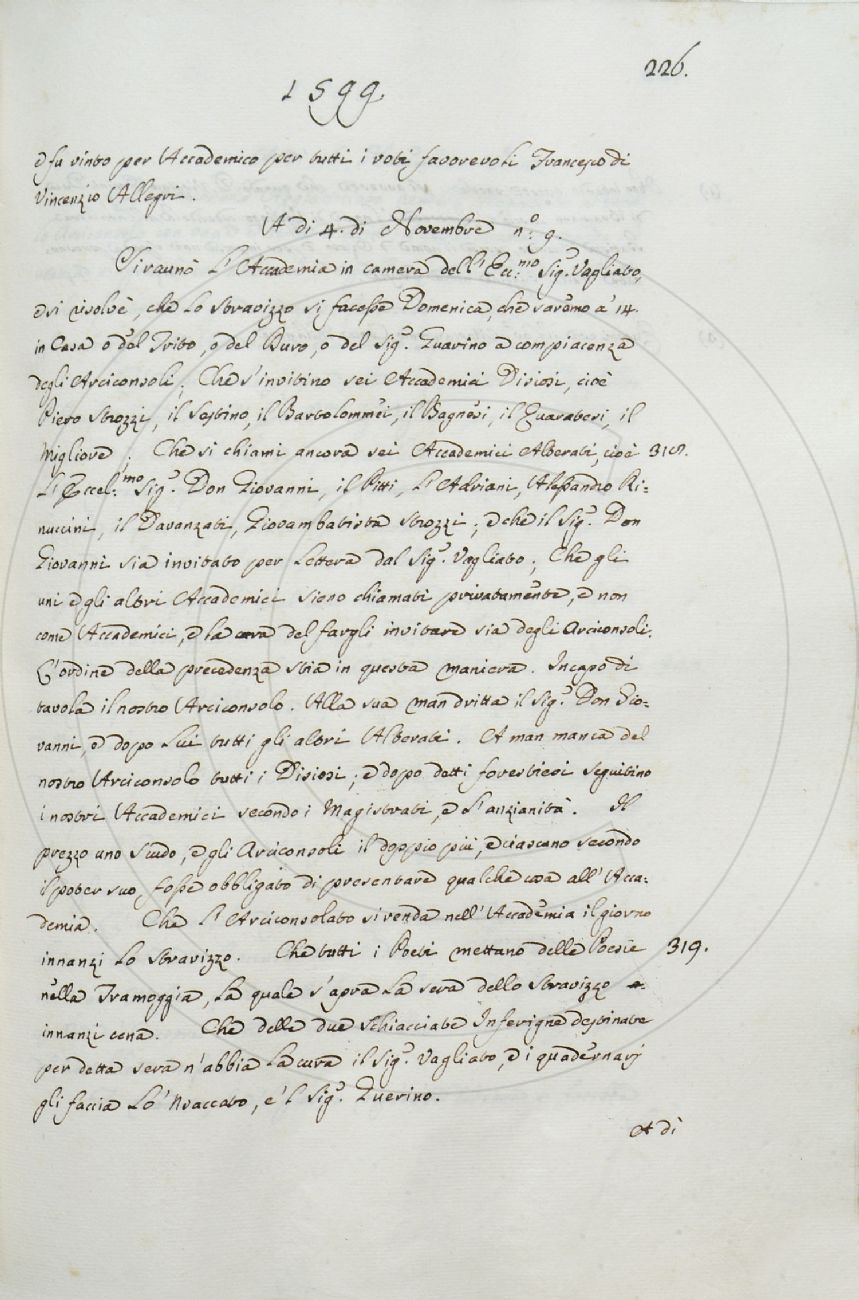 226.
1599
e fu vinto per Accademico per tutti i voti favorevoli Francesco di
Vincenzio Allegri.
A di 4. di Novembre n.º 9.
Si raunò l'Accademia in camera dell'Ecc:mo Sig.r Vagliato,
e si risolvè, che lo stravizzo si facesse Domenica, che saremo a' 14.
in Casa o del Trito, o del Buro, o del Sig.r Guarino a compiacenza
degli Arciconsoli; Che s'invitino sei Accademici Disiosi, cioè
Piero Strozzi, il Sestino, il Bartolommei, il Bagnesi, il Guaraberi, il
Migliore; Che si chiami ancora sei Accademici Alterati, cioè 318.
L'Eccel:mo Sig.r Don Giovanni, il Pitti, l'Adriani, Alessandro Ri:
nuccini, il Davanzati, Giovambatista Strozzi; e che il Sig.r Don
Giovanni sia invitato per lettera dal Sig.r Vagliato; Che gli
uni e gli altri Accademici sieno chiamati privatamente, e non
come Accademici, e la cura del fargli invitare sia degli Arciconsoli.
L'ordine della precedenza stia in questa maniera. In capo di
tavola il nostro Arciconsolo. Alla sua man dritta il Sig.r Don Gio:
vanni, e dopo Lui tutti gli altri Alterati. A man manca del
nostro Arciconsolo tutti i Disiosi; e dopo detti forestieri seguitino
i nostri Accademici secondo i Magistrati, e l'anzianità. Il
prezzo uno scudo, e gli Arciconsoli il doppio più, e ciascuno secondo
il poter suo fosse obbligato di presentare qualche cosa all'Acca:
demia. Che l'Arciconsolato si renda nell'Accademia il giorno
innanzi lo stravizzo. Che tutti i Poeti mettano delle Poesie 319.
nella Tramoggia, la quale s'apra la sera dello stravizzo
innanzi cena. Che delle due schiacciate Inferigne destinate
per detta sera n'abbia la cura il Sig.r Vagliato, e i quadernarj
gli faccia lo 'nsaccato, e 'l Sig.r Guerino.
A dì